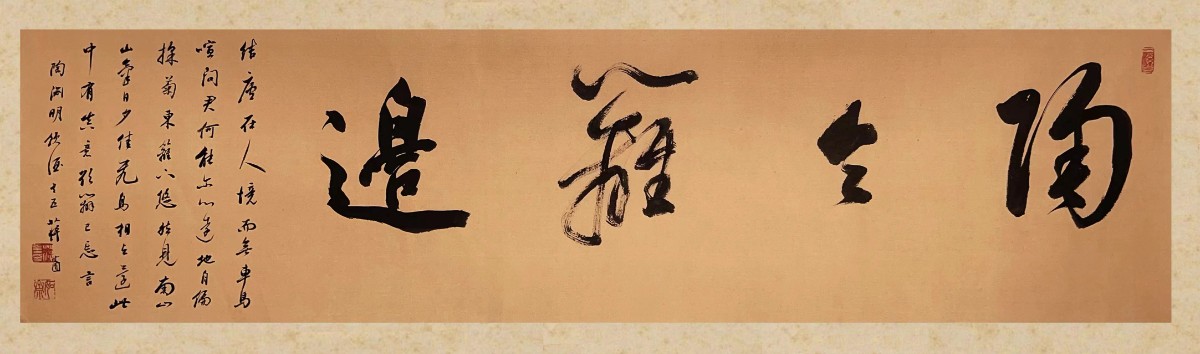 陶令籬邊
結廬在人境而無車馬
喧問君何能尔心遠地自偏
採菊東籬下悠然見南山
山氣日夕佳飛鳥相與還此
中有真意欲辯已忘言
陶淵明飲酒